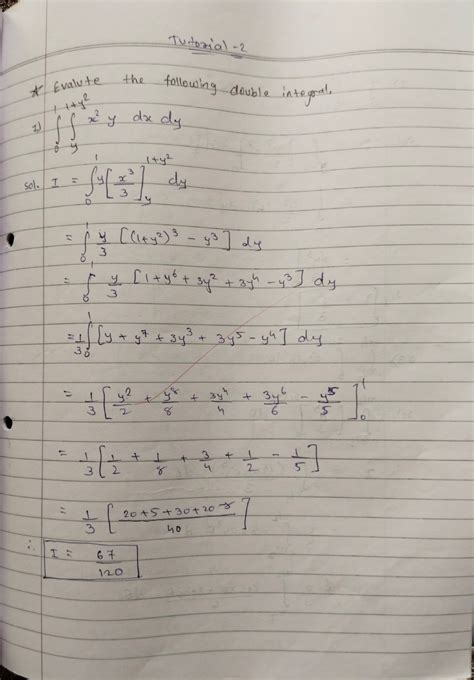 Tutorial-2
* Evalute the following double integral.
1) ∫₀¹ ∫_y^{1+y²} x² y dx dy
sol. I = ∫₀¹ y [x³/3]_y^{1+y²} dy
= ∫₀¹ y/3 [(1+y²)³ - y³] dy
= ∫₀¹ y/3 [1+y⁶ + 3y² + 3y⁴ - y³] dy
= 1/3 ∫₀¹ [y + y⁷ + 3y³ + 3y⁵ - y⁴] dy
= 1/3 [y²/2 + y⁸/8 + 3y⁴/4 + 3y⁶/6 - y⁵/5]₀¹
= 1/3 [1/2 + 1/8 + 3/4 + 1/2 - 1/5]
= 1/3 [20+5+30+20-8/40]
∴ I = 67/120